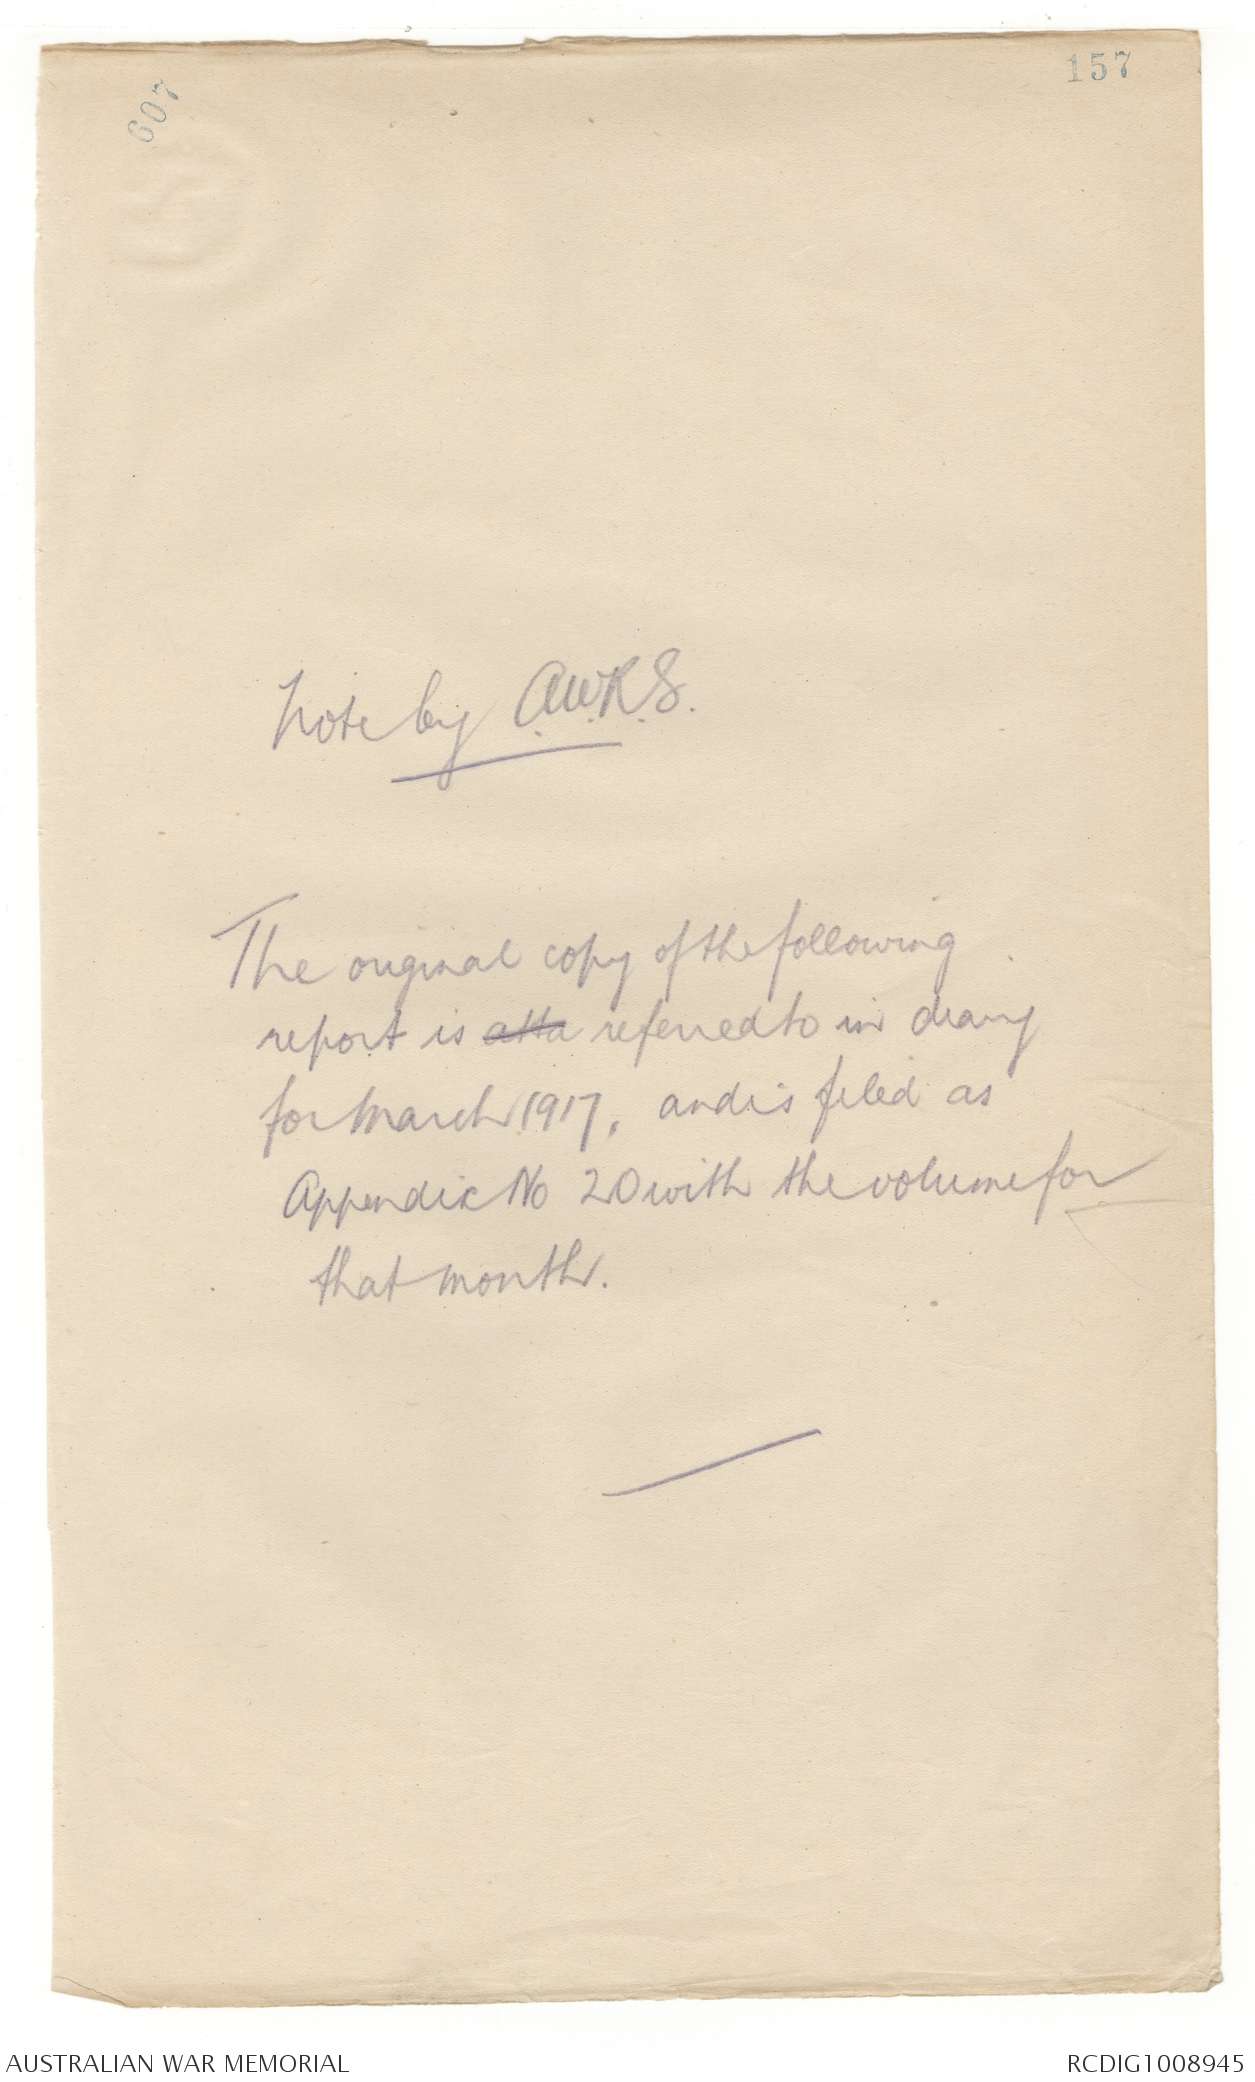 607
157
Note by A.W.R.S.
The original copy of the following
report is atta referred to in diary
for March 1917, and is filed as
Appendix No 20 with the volume for
that month.
AUSTRALIAN WAR MEMORIAL
RCDIG1008945